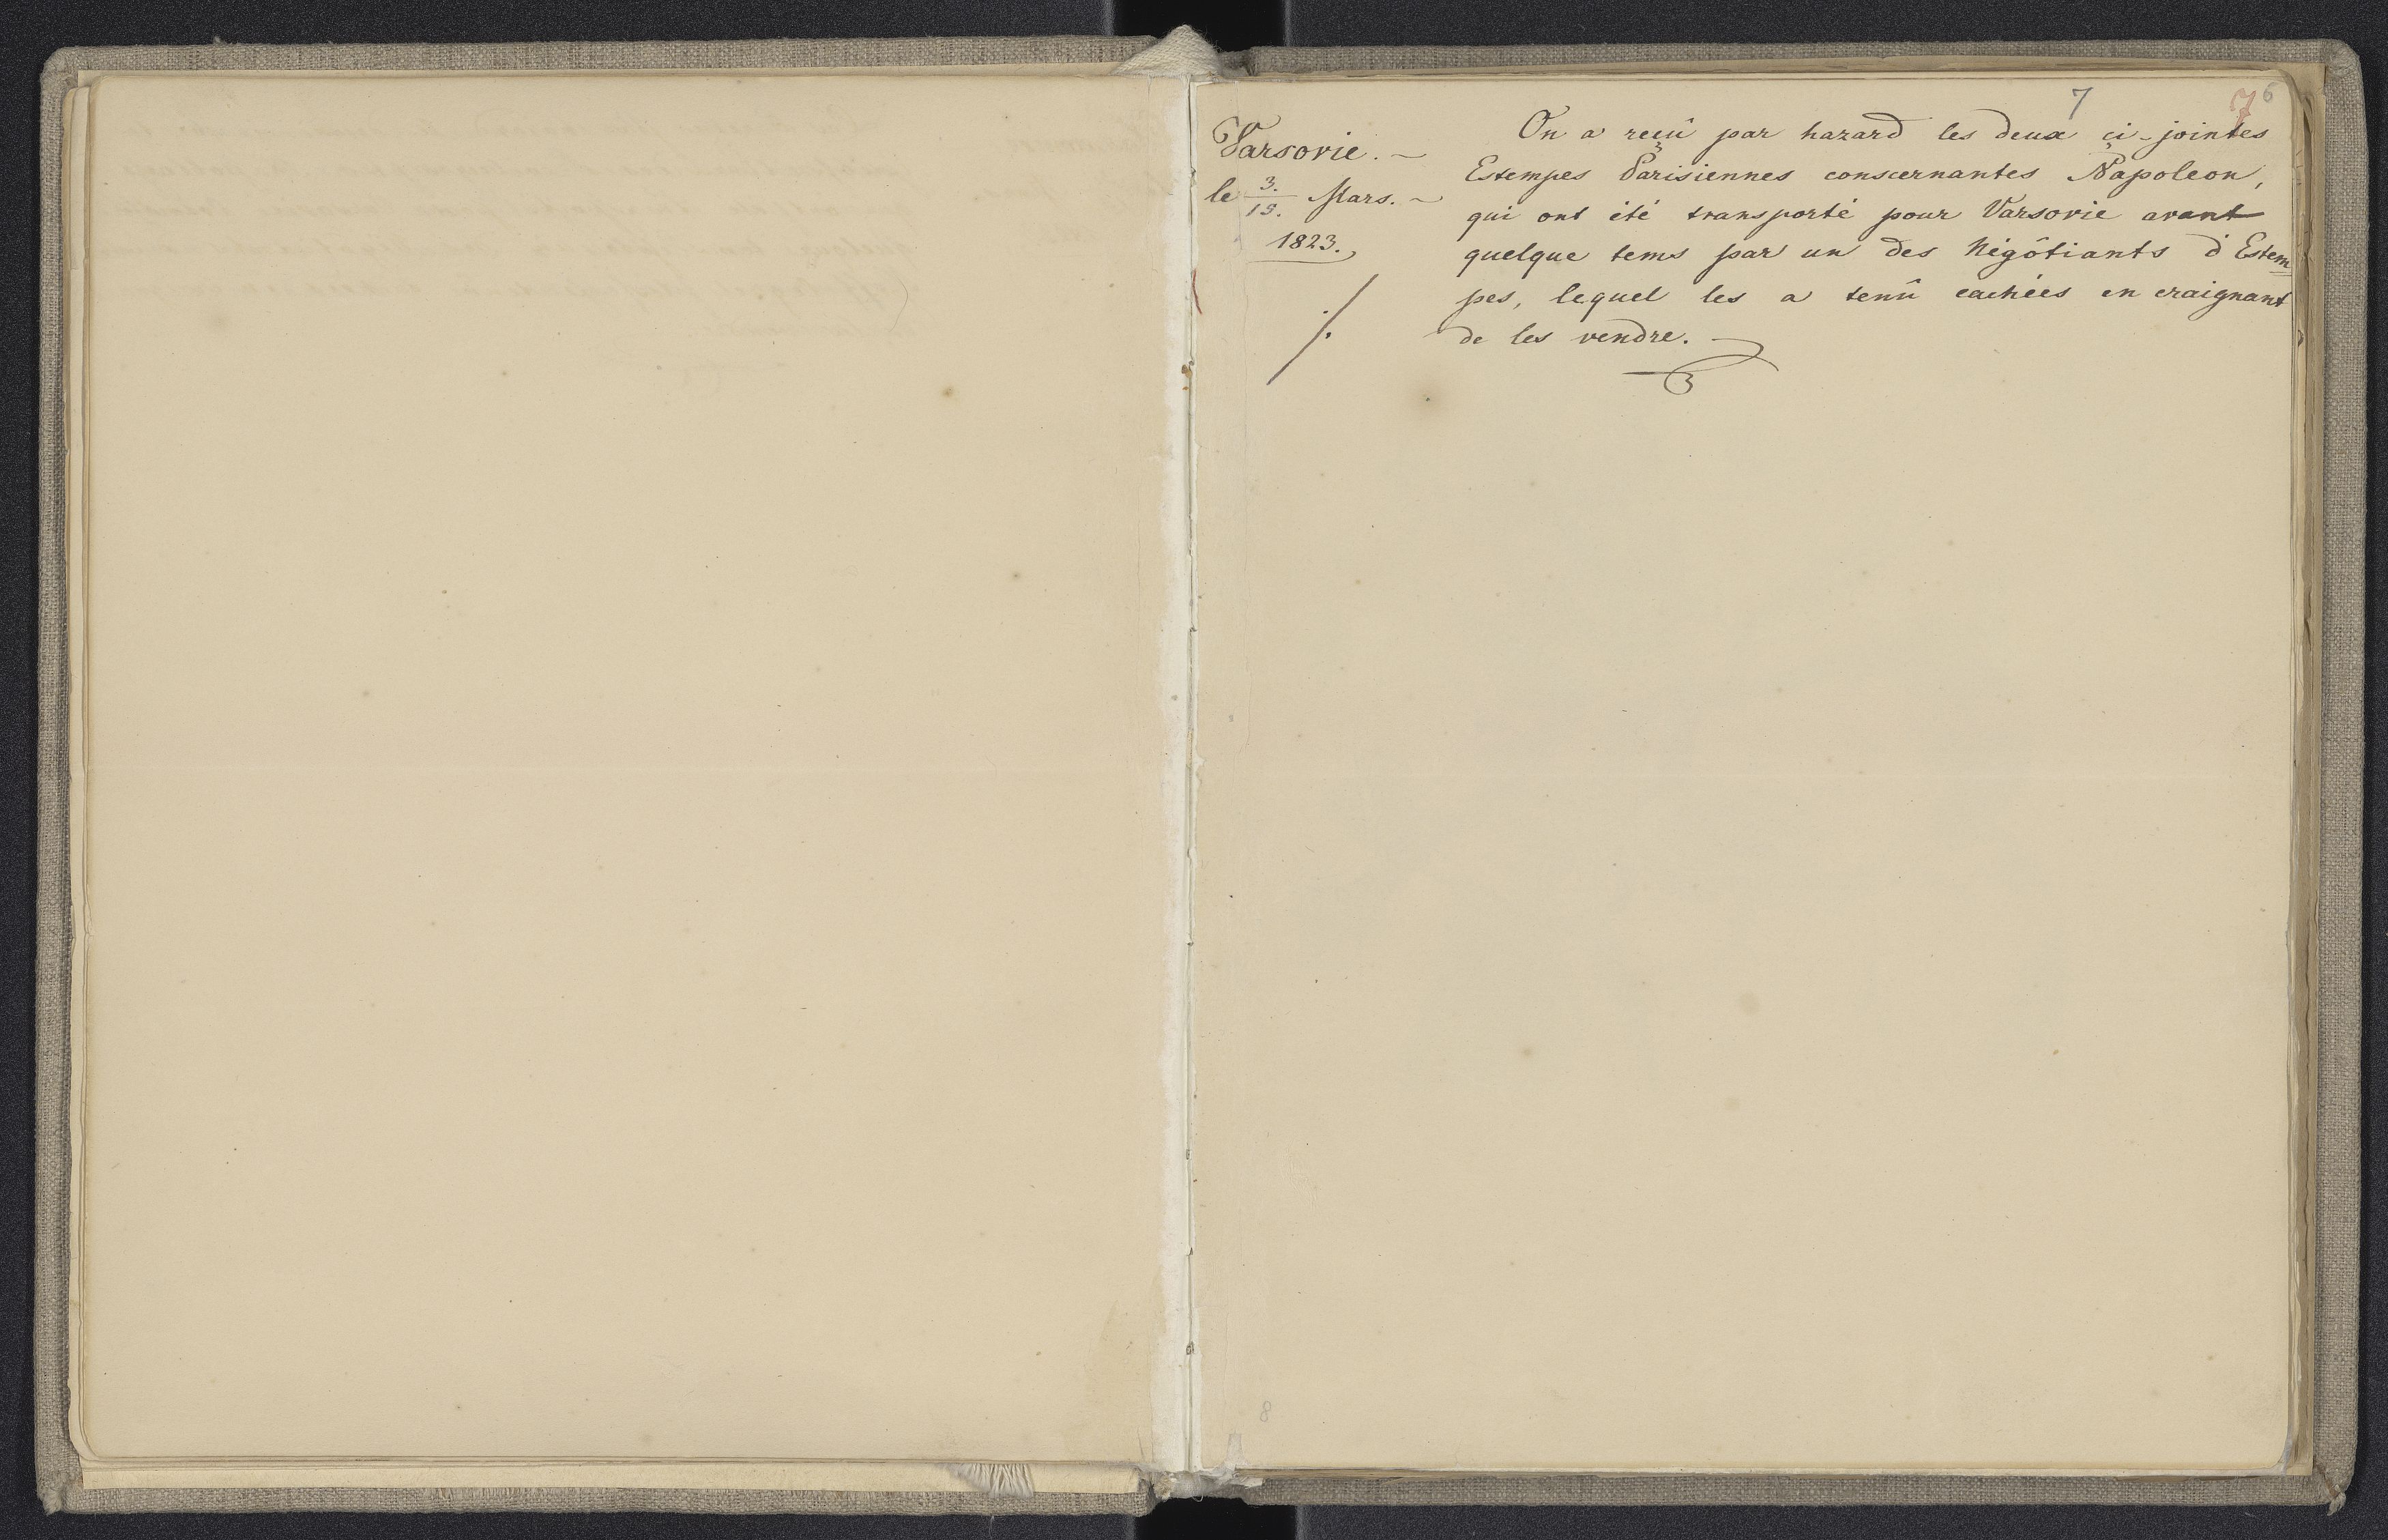 7
7 6
Varsovie. ~
le 3./15. Mars. ~
1823.
./.
On a reçû par hazard les deux çi-jointes
Estempes Parisiennes conscernantes Napoleon,
qui ont été transporté pour Varsovie avant
quelque tems par un des Négôtiants d'Estem=
pes, lequel les a tenû cachées en craignant
de les vendre. ~
8